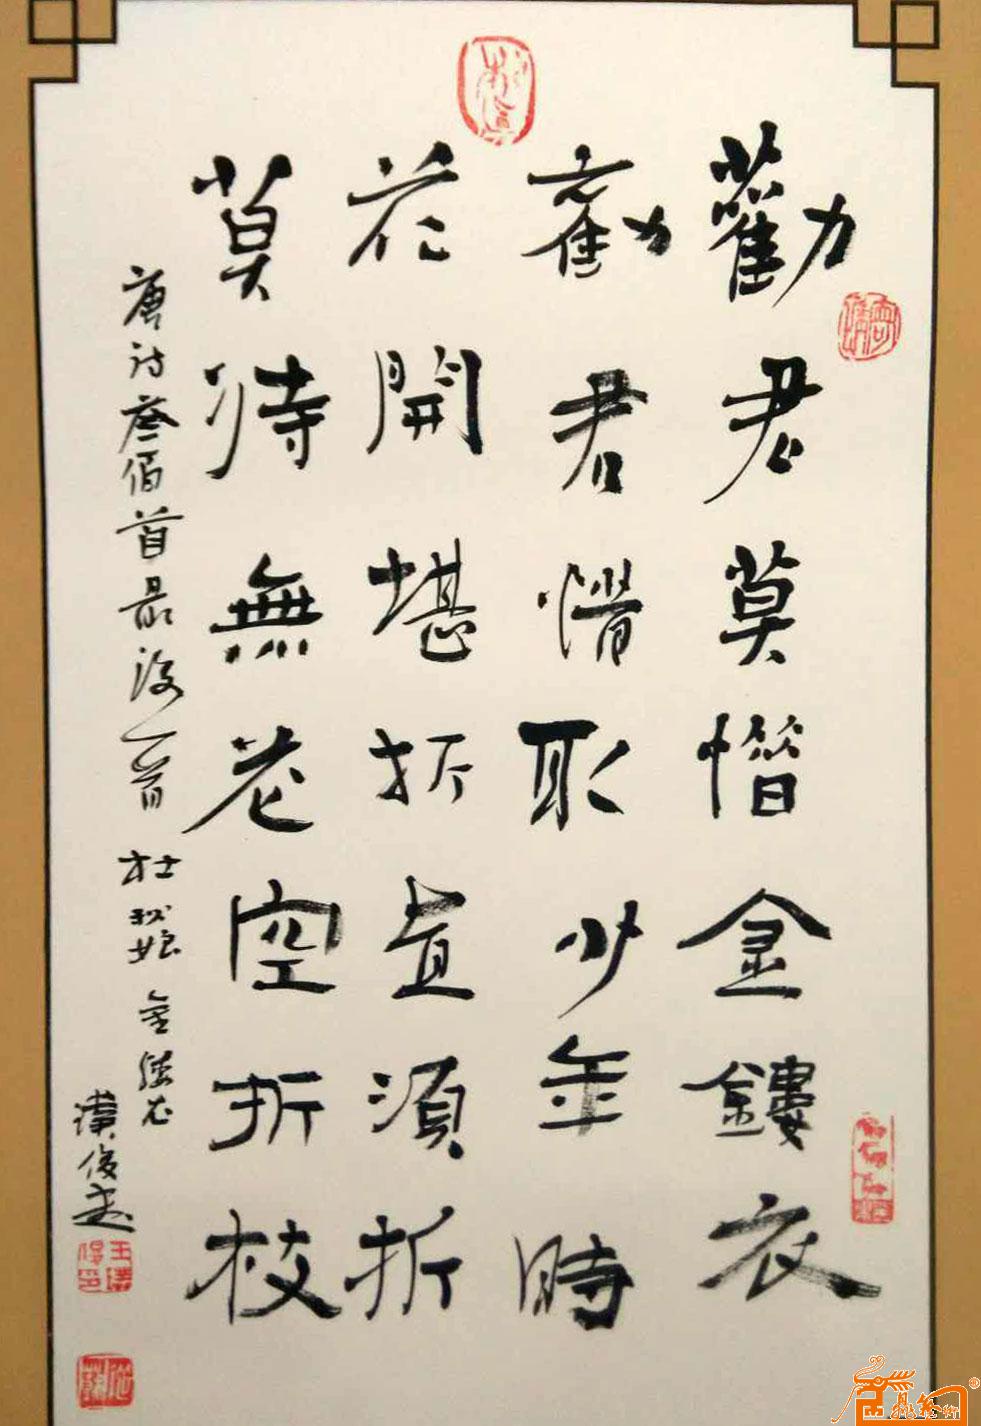 勸君莫惜金鏤衣
勸君惜取少年時
花開堪折直須折
莫待無花空折枝
唐詩叁佰首最後一首 杜秋娘 金縷衣
漢俊書